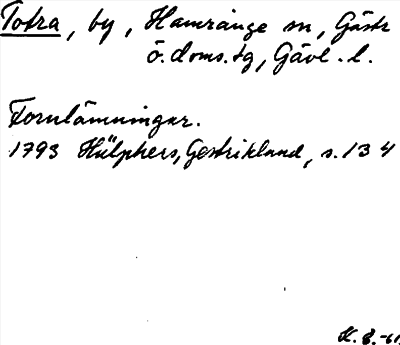 Totra, by, Hamrånge sn, Gästr
ö. doms. tg, Gävl. l.
Fornlämningar.
1793 Hülphers, Gestrikland, s. 134